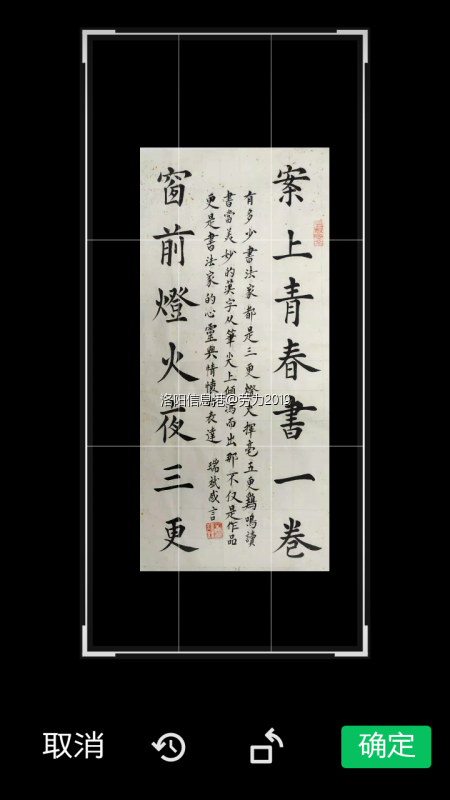 案上青春書一卷
有多少書法家都是三更燈火揮毫五更鷄鳴讀
書當美妙的漢字从筆尖上傾瀉而出那不仅是作品
更是書法家的心靈與情懷的表達
瑞斌感言
窗前燈火夜三更
洛阳信息港@劳力2019
取消
确定